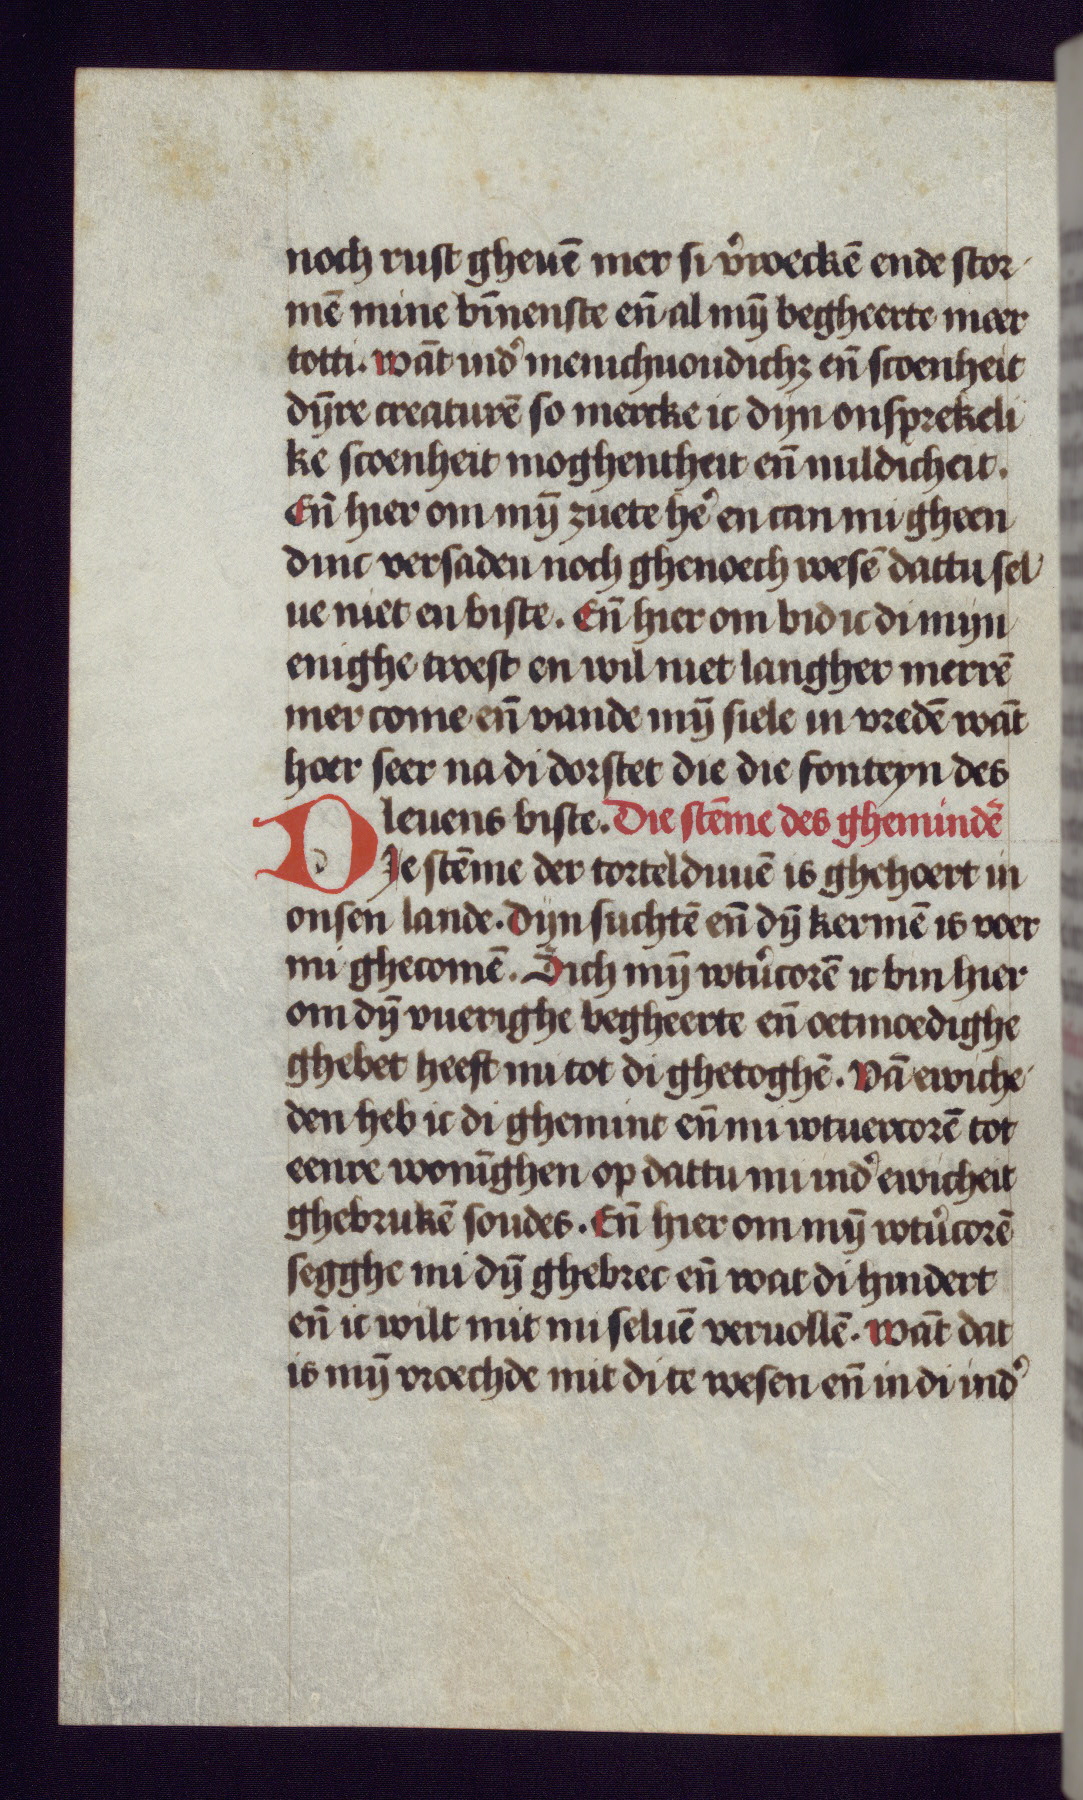 noch rust gheuē mer si v̓weckē ende stor-
mē mine bīnenste eñ al mȳ begheerte meer
totti. wāt ind̓ menichuoudichꝫ eñ scoenheit
dȳre creaturē so mercke ic dijn onsprekeli
ke scoenheit moghentheit eñ mildicheit.
Eñ hier om mȳ zuete he̓ en can mi gheen
dinc versaden noch ghenoech wesē dattu sel-
ue niet en biste. Eñ hier om bid ic di mijn
enighe troest en wil niet langher merrē
mer come eñ vande mȳ siele in vredē wāt
hoer seer na di dorstet die die fonteyn des
leuens biste. Die stēme des ghemindē
DJe stēme der tortelduuē is ghehoert in
onsen lande. Dijn suchtē eñ dȳ kermē is voer
mi ghecomē. Sich mȳ wtv̓corē ic bin hier
om dȳ vuerighe begheerte eñ oetmoedighe
ghebet heeft mi tot di ghetoghē. Vā ewiche-
den heb ic di ghemint eñ mi wtuercorē tot
eenre wonīghen op dattu mi ind̓ ewicheit
ghebrukē soudes. Eñ hier om mȳ wtv̓corē
segghe mi dȳ ghebrec eñ wat di hindert
eñ ic wilt mit mi seluē veruollē. wāt dat
is mȳ vroechde mit di te wesen eñ in di ind̓